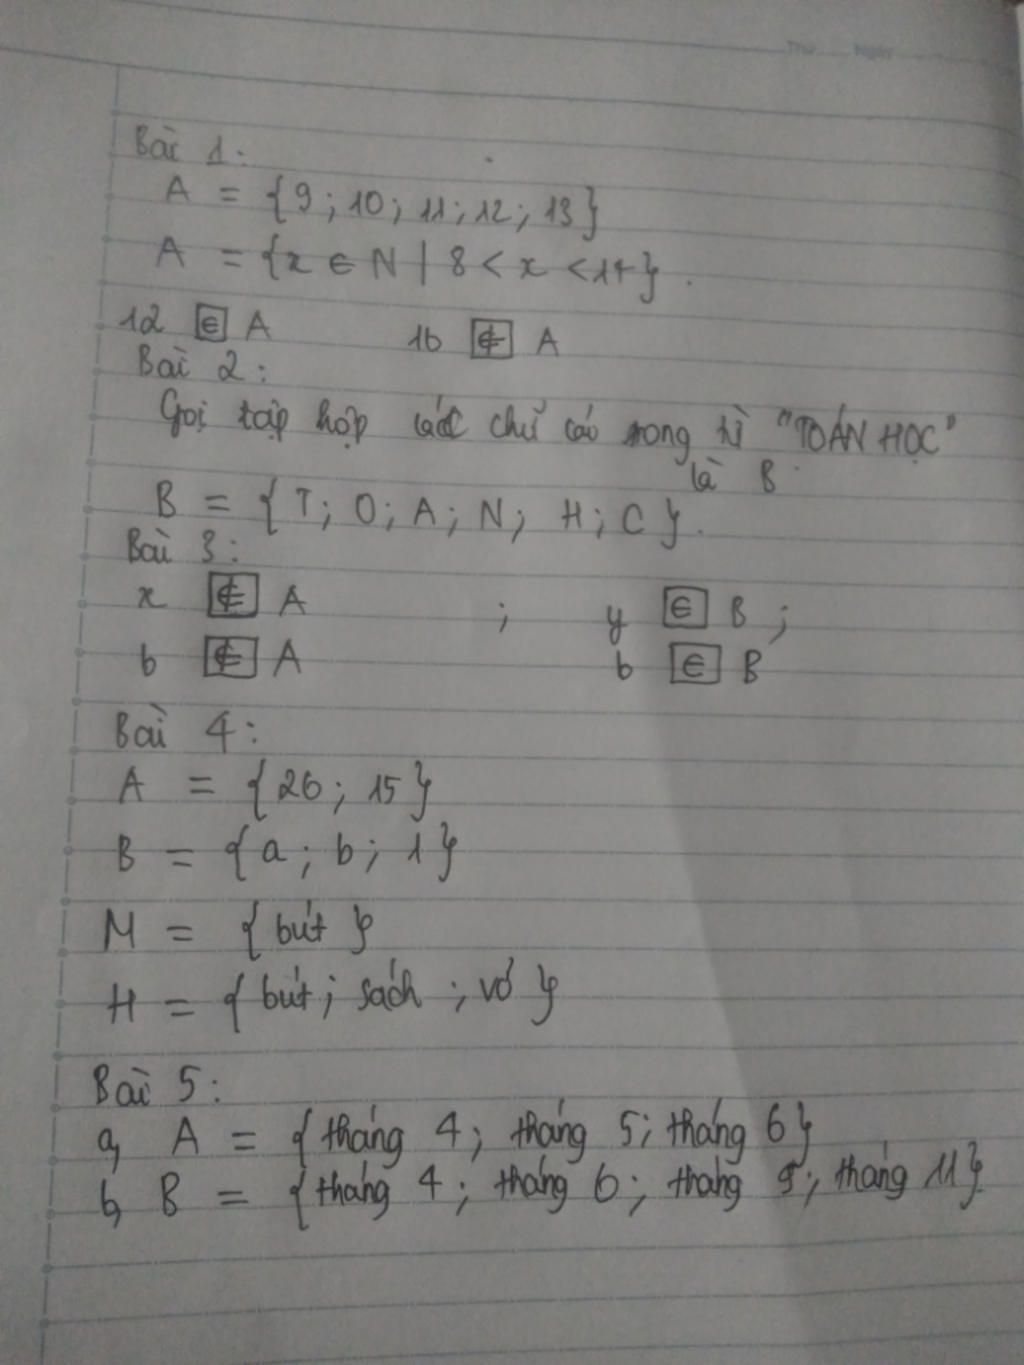 Thứ Ngày
Bài 1:
A = {9; 10; 11; 12; 13}
A = {x ∈ N | 8 < x < 14}.
12 ∈ A 16 ∉ A
Bài 2:
Gọi tập hợp các chữ cái trong từ "TOÁN HỌC"
là B
B = {T; O; A; N; H; C}.
Bài 3:
x ∉ A ; y ∈ B;
b ∉ A b ∈ B
Bài 4:
A = {26; 15}
B = {a; b; 1}
M = {bút}
H = {bút; sách; vở}
Bài 5:
a, A = {tháng 4; tháng 5; tháng 6}
b, B = {tháng 4; tháng 6; tháng 9; tháng 11}.